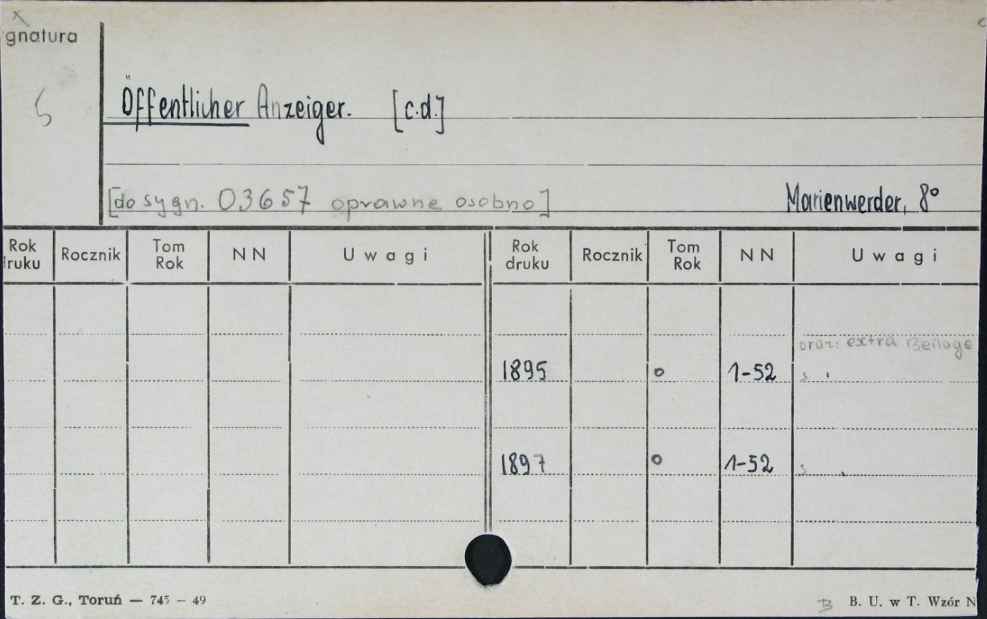 gnatura
5
Öffentlicher Anzeiger. [c.d.]
[do sygn. 03657 oprawne osobno]
Marienwerder, 8°
Rok ruku Rocznik Tom Rok NN Uwagi Rok druku Rocznik Tom Rok NN Uwagi
oraz: extra Beilage
1895 o 1-52
1897 o 1-52
T. Z. G., Toruń — 745 – 49
B B. U. w T. Wzór N